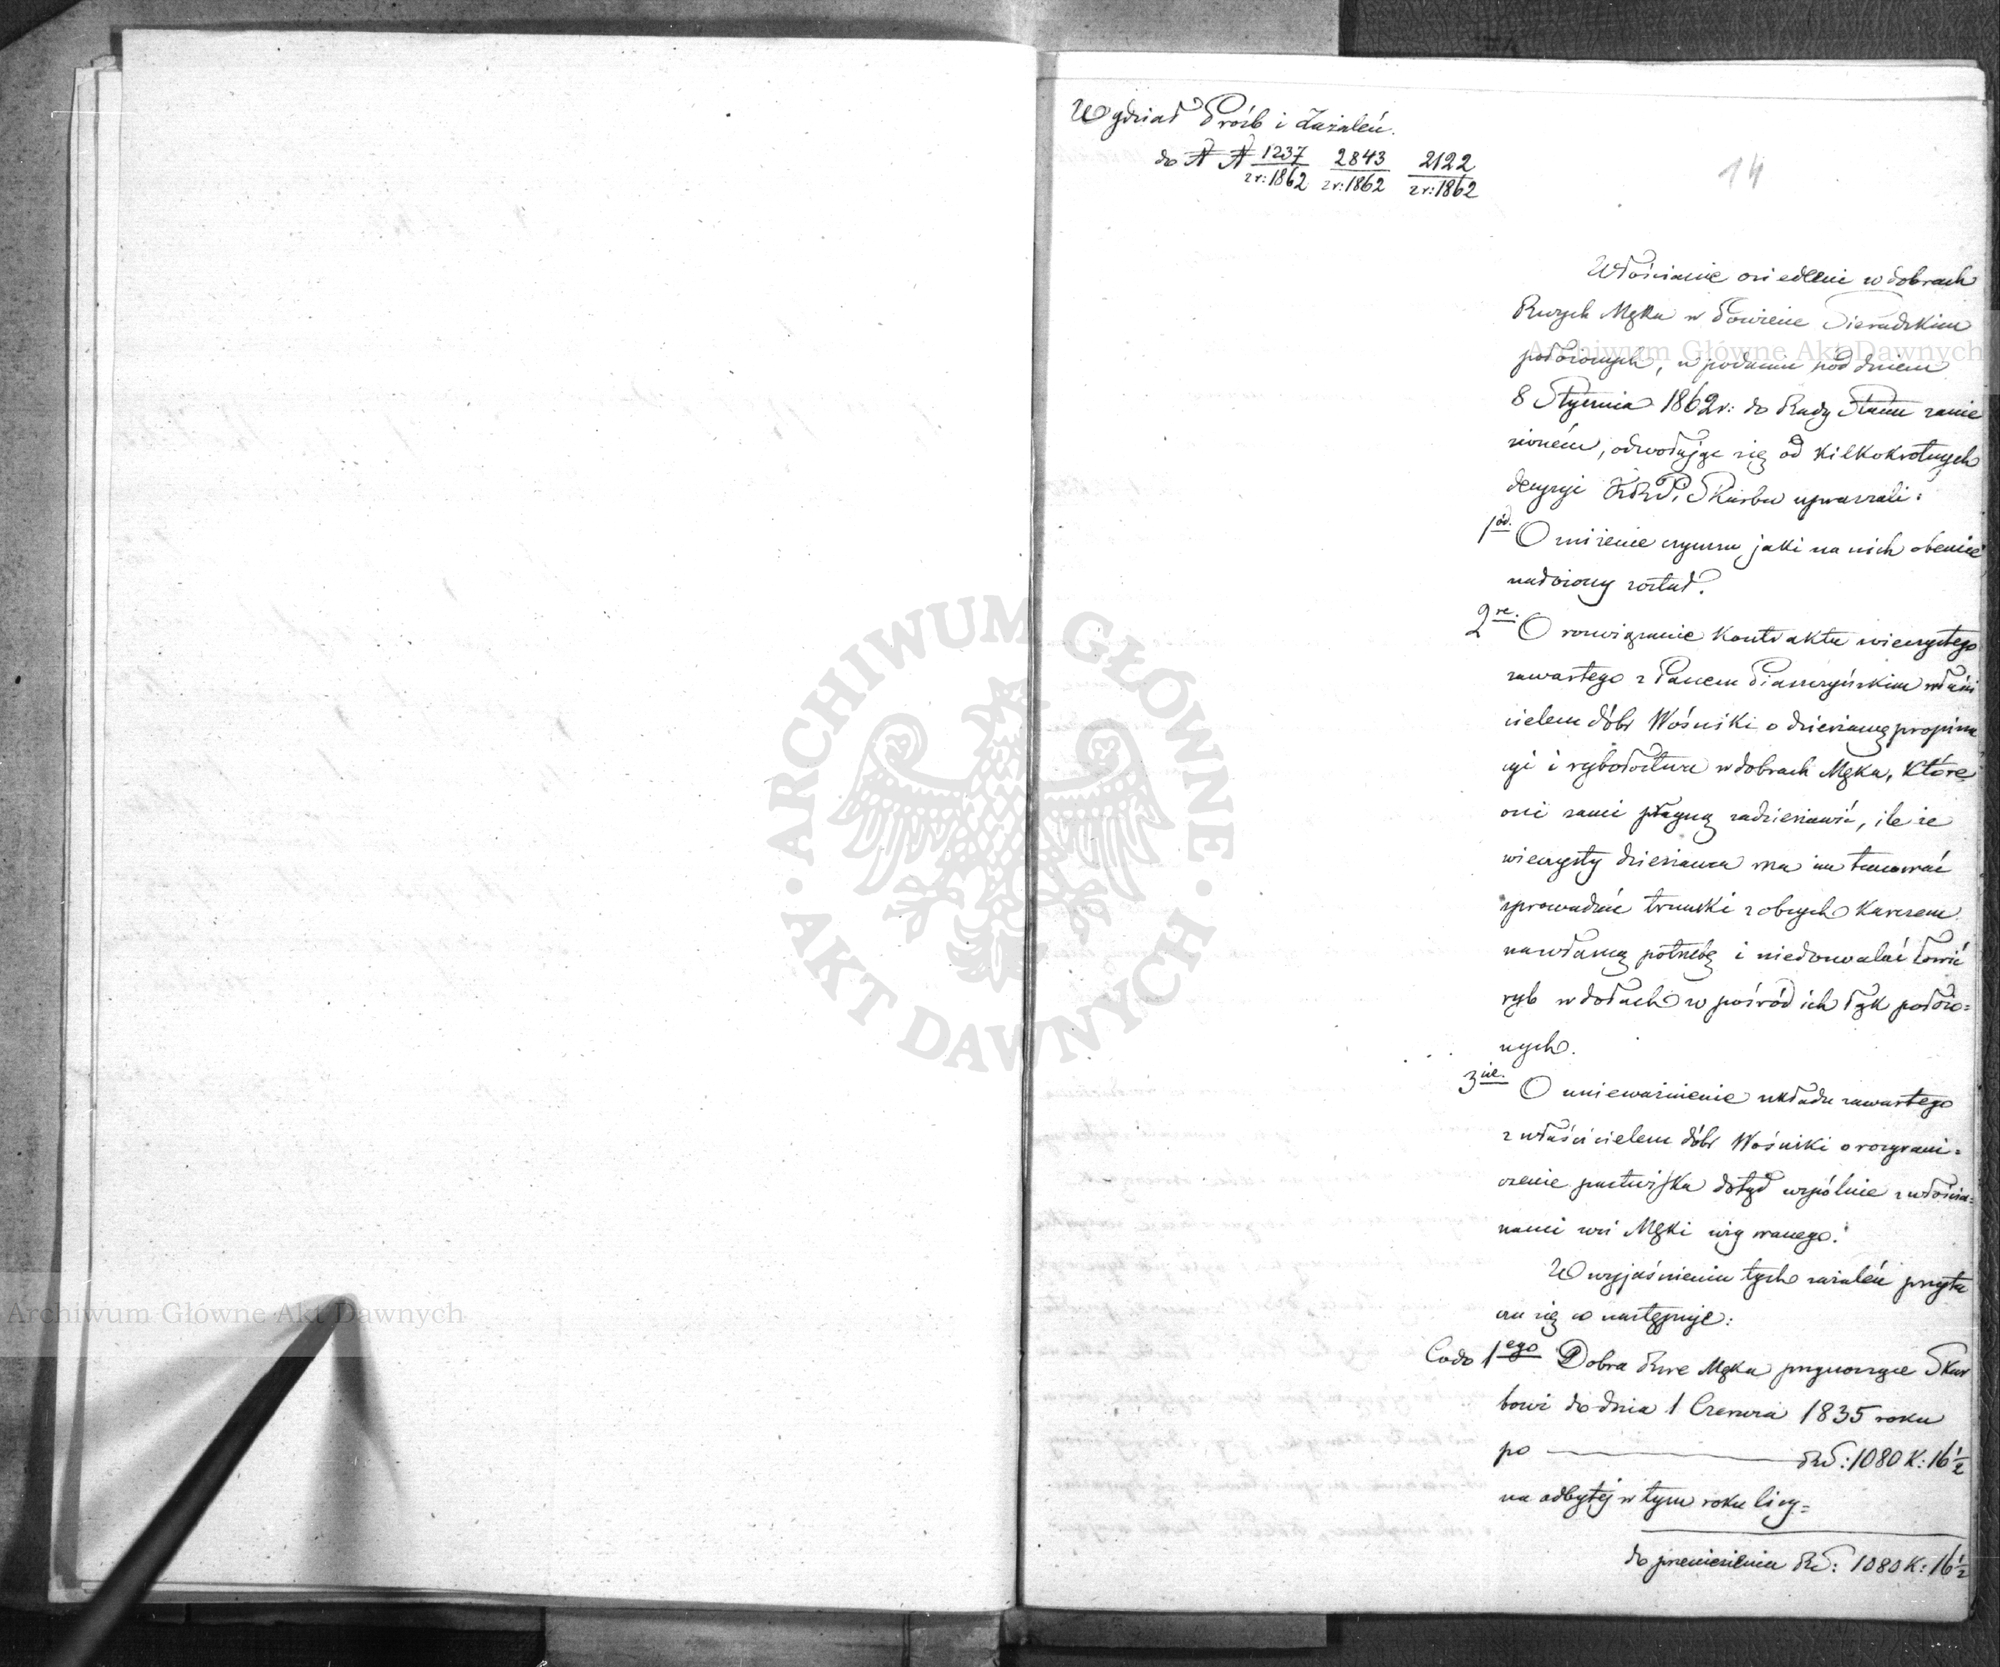 Wydział Próśb i Zażaleń.
do NN 1237/z r: 1862 2843/z r: 1862 2122/z r: 1862
14
Włościanie osiedleni w dobrach
Rwych Męka w Powiecie Sieradzkim
położonych, w podaniu pod dniem
8 Stycznia 1862 r: do Rady Stanu zanie
sionem, odwołując się od kilkokrotnych
decyzyi KRP. Skarbu upraszali:
1ód. O zniżenie czynszu jaki na nich obecnie
nałożony został.
2re. O rozwiązanie kontraktu wieczystego
zawartego z Panem Piaszczyńskim właści
cielem dóbr Wośniki o dzierżawę propina
cyi i rybołostwa w dobrach Męka, które
oni sami pragną zadzierżawić, ile że
wieczysty dzierżawca ma im tamować
sprowadzać trunki z obcych karczem
na własną potrzebę i niedozwalać łowić
ryb w dołach w pośród ich łąk położo=
nych.
3cie. O unieważnienie układu zawartego
z właścicielem dóbr Wośniki o rozgrani=
czenie pastwiska dotąd wspólnie z włościa=
nami wsi Męki używanego.
W wyjaśnieniu tych zażaleń przyta
cza się co następuje:
Co do 1ego Dobra Rwe Męka przynosząc Skar
bowi do dnia 1 Czerwca 1835 roku
po Rs: 1080 K: 16 1/2
na odbytéj w tym roku licy=
do przeniesienia Rs: 1080 K: 16 1/2
ARCHIWUM GŁÓWNE
AKT DAWNYCH
Archiwum Główne Akt Dawnych
Archiwum Główne Akt Dawnych